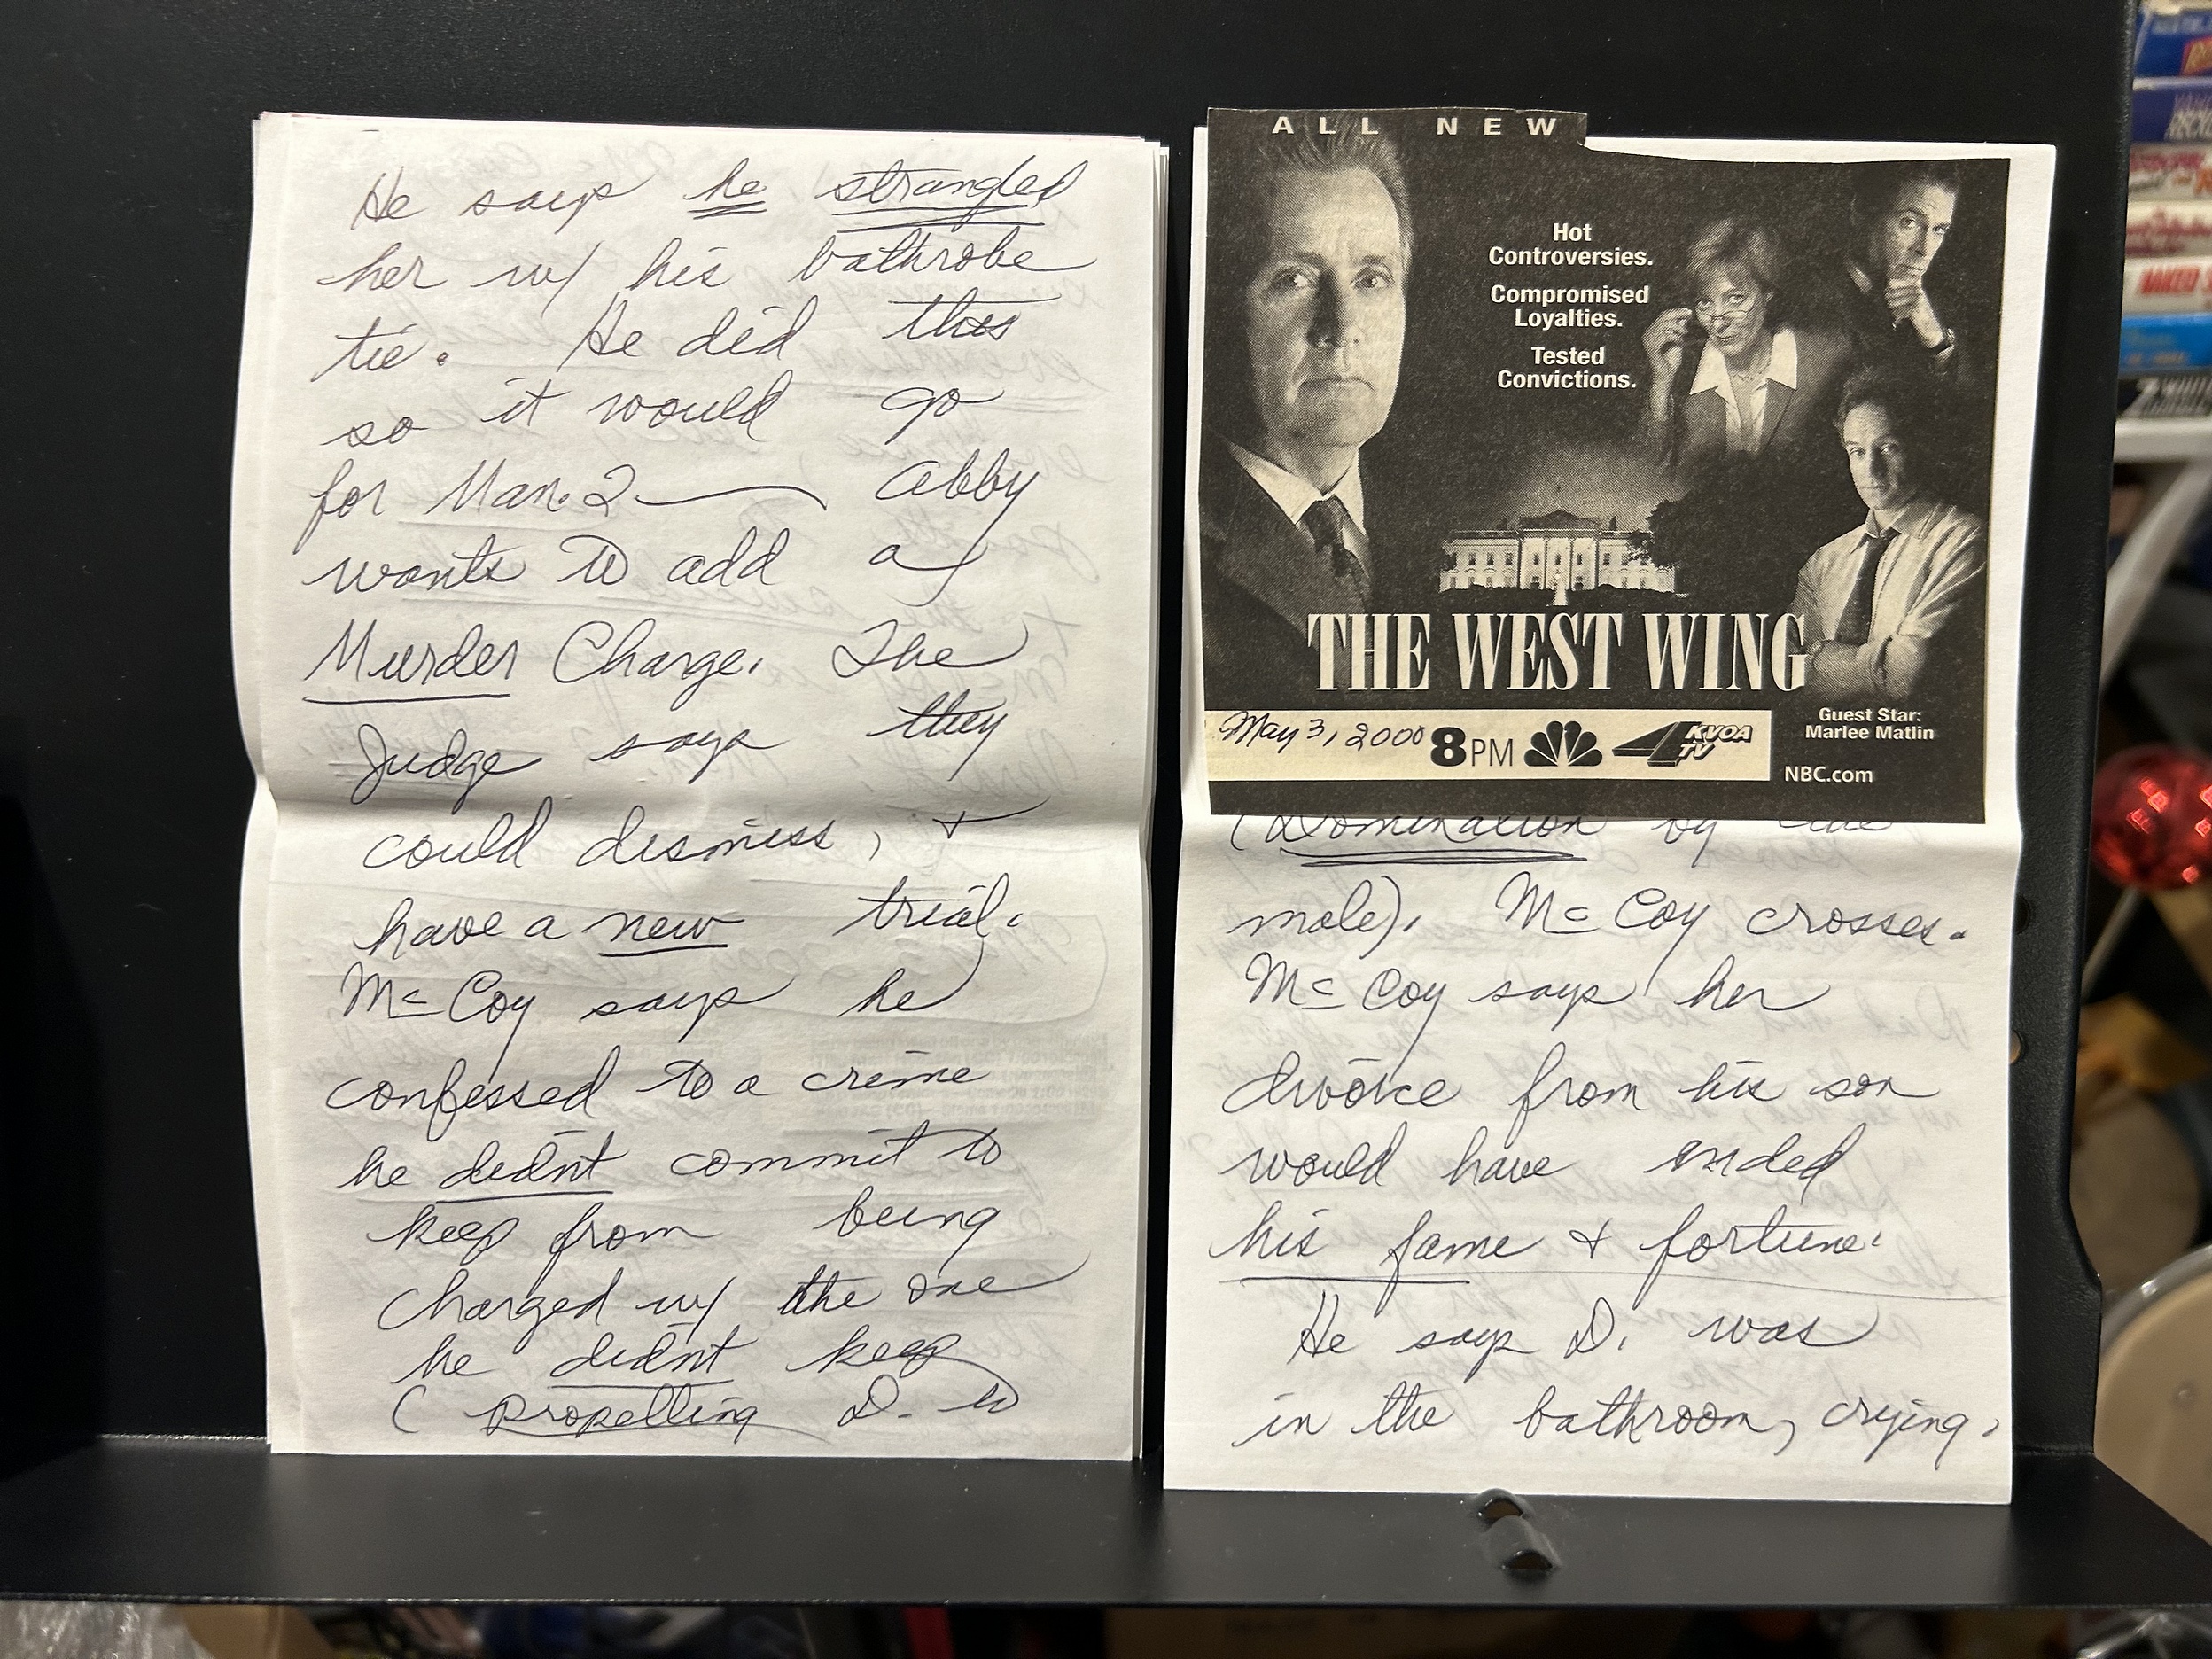 He says he strangled
her w/ his bathrobe
tie. He did this
so it would go
for Man. 2 — Abby
wants to add a
Murder Charge. The
Judge says they
could dismiss, +
have a new trial.
McCoy says he
confessed to a crime
he didn't commit to
keep from being
charged w/ the one
he didn't keep
( propelling D. to
ALL NEW
Hot
Controversies.
Compromised
Loyalties.
Tested
Convictions.
THE WEST WING
May 3, 2000 8PM 4 KVOA TV
Guest Star:
Marlee Matlin
NBC.com
(Domination by
male). McCoy crosses.
McCoy says her
divorce from his son
would have ended
his fame + fortune.
He says D. was
in the bathroom, crying,